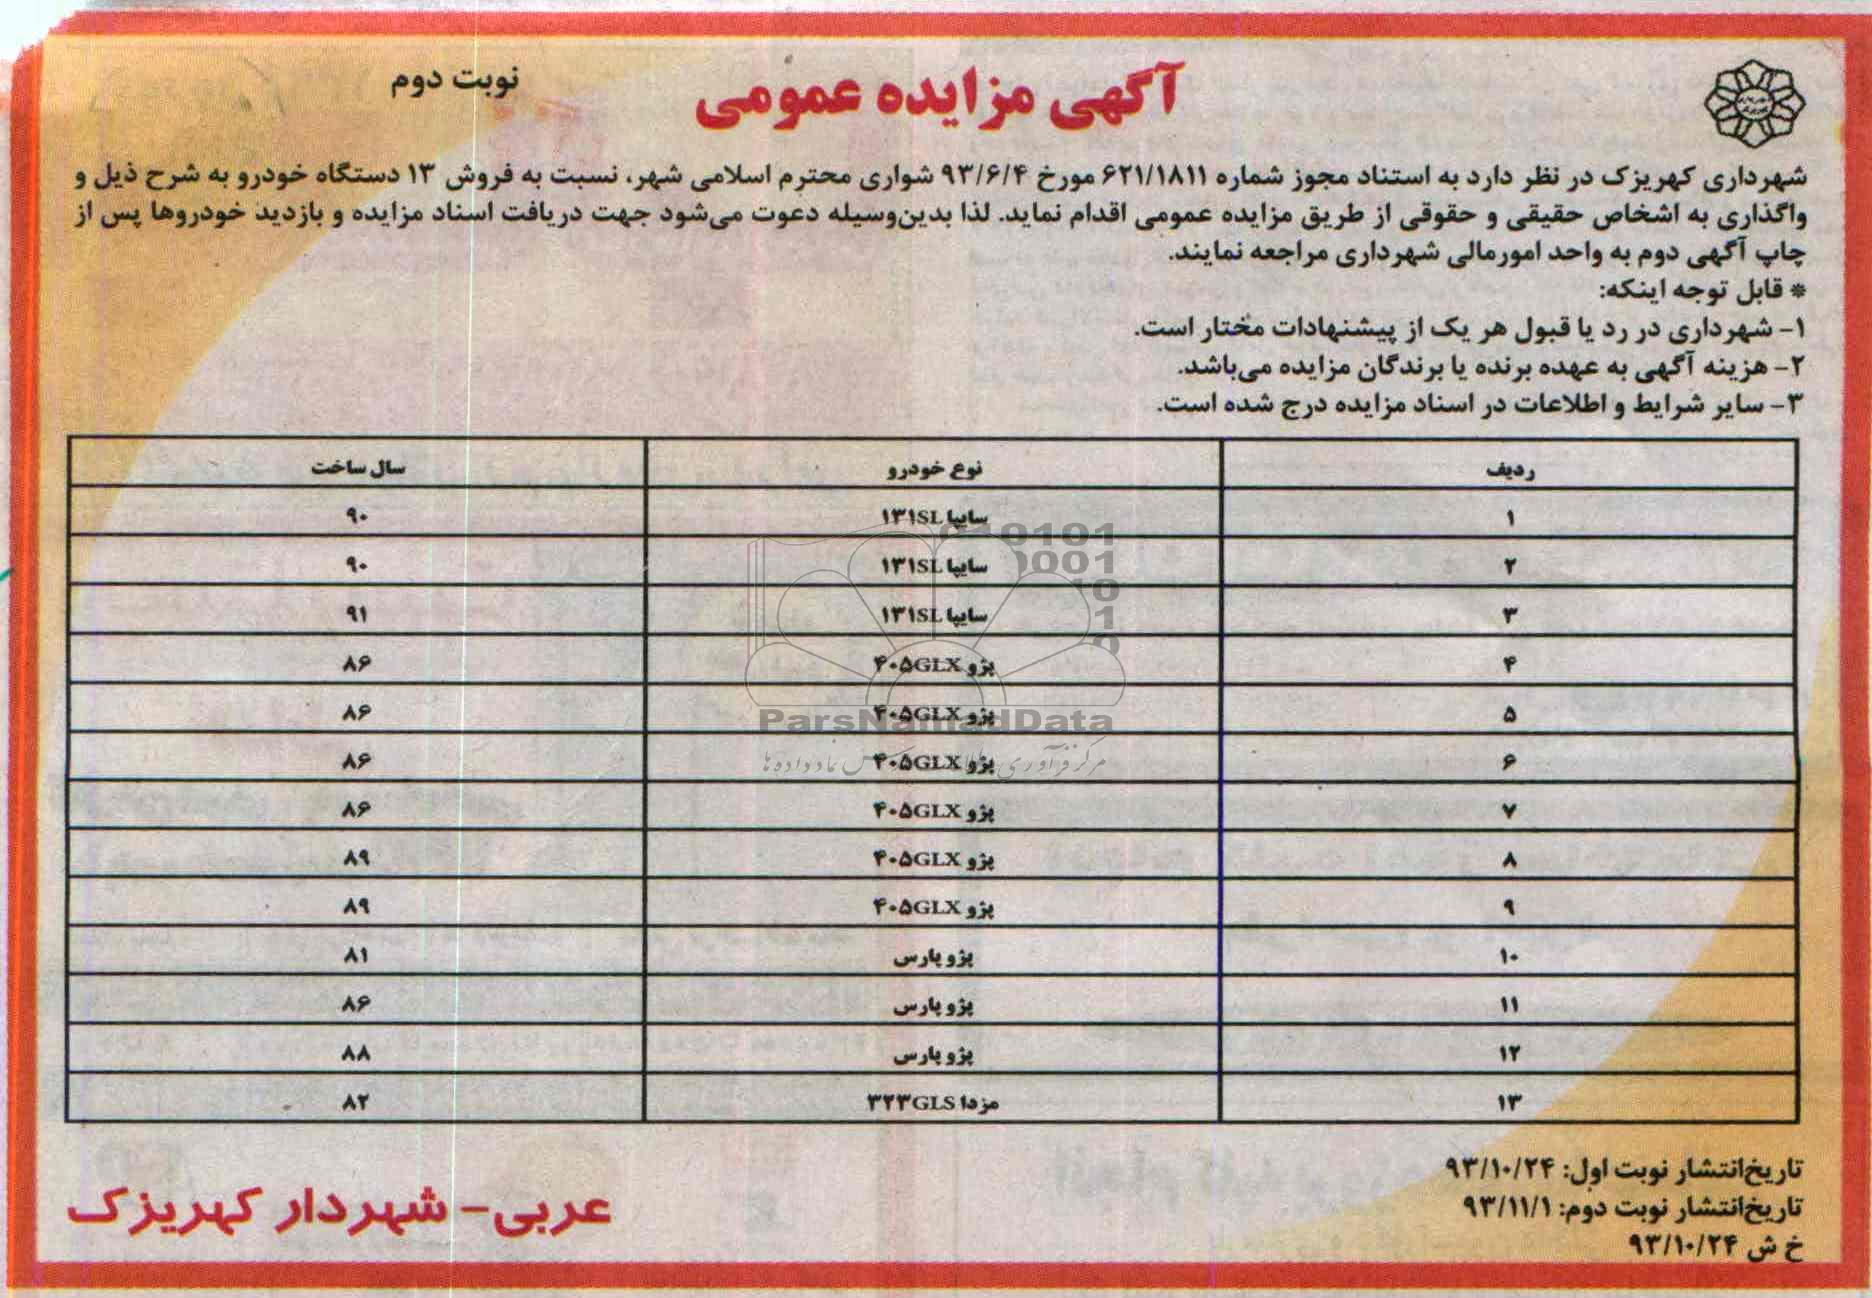 آگهی مزایده عمومی
نوبت دوم
شهرداری کهریزک در نظر دارد به استناد مجوز شماره ۶۲۱/۱۸۱۱ مورخ ۹۳/۶/۴ شواری محترم اسلامی شهر، نسبت به فروش ۱۳ دستگاه خودرو به شرح ذیل و
واگذاری به اشخاص حقیقی و حقوقی از طریق مزایده عمومی اقدام نماید. لذا بدین‌وسیله دعوت می‌شود جهت دریافت اسناد مزایده و بازدید خودروها پس از
چاپ آگهی دوم به واحد امورمالی شهرداری مراجعه نمایند.
* قابل توجه اینکه:
۱- شهرداری در رد یا قبول هر یک از پیشنهادات مختار است.
۲- هزینه آگهی به عهده برنده یا برندگان مزایده می‌باشد.
۳- سایر شرایط و اطلاعات در اسناد مزایده درج شده است.
ردیف نوع خودرو سال ساخت
۱ سایپا ۱۳۱SL ۹۰
۲ سایپا ۱۳۱SL ۹۰
۳ سایپا ۱۳۱SL ۹۱
۴ پژو ۴۰۵GLX ۸۶
۵ پژو ۴۰۵GLX ۸۶
۶ پژو ۴۰۵GLX ۸۶
۷ پژو ۴۰۵GLX ۸۶
۸ پژو ۴۰۵GLX ۸۹
۹ پژو ۴۰۵GLX ۸۹
۱۰ پژو پارس ۸۱
۱۱ پژو پارس ۸۶
۱۲ پژو پارس ۸۸
۱۳ مزدا ۳۲۳GLS ۸۲
ParsNamadData
تاریخ‌انتشار نوبت اول: ۹۳/۱۰/۲۴
تاریخ‌انتشار نوبت دوم: ۹۳/۱۱/۱
خ ش ۹۳/۱۰/۲۴
عربی- شهردار کهریزک